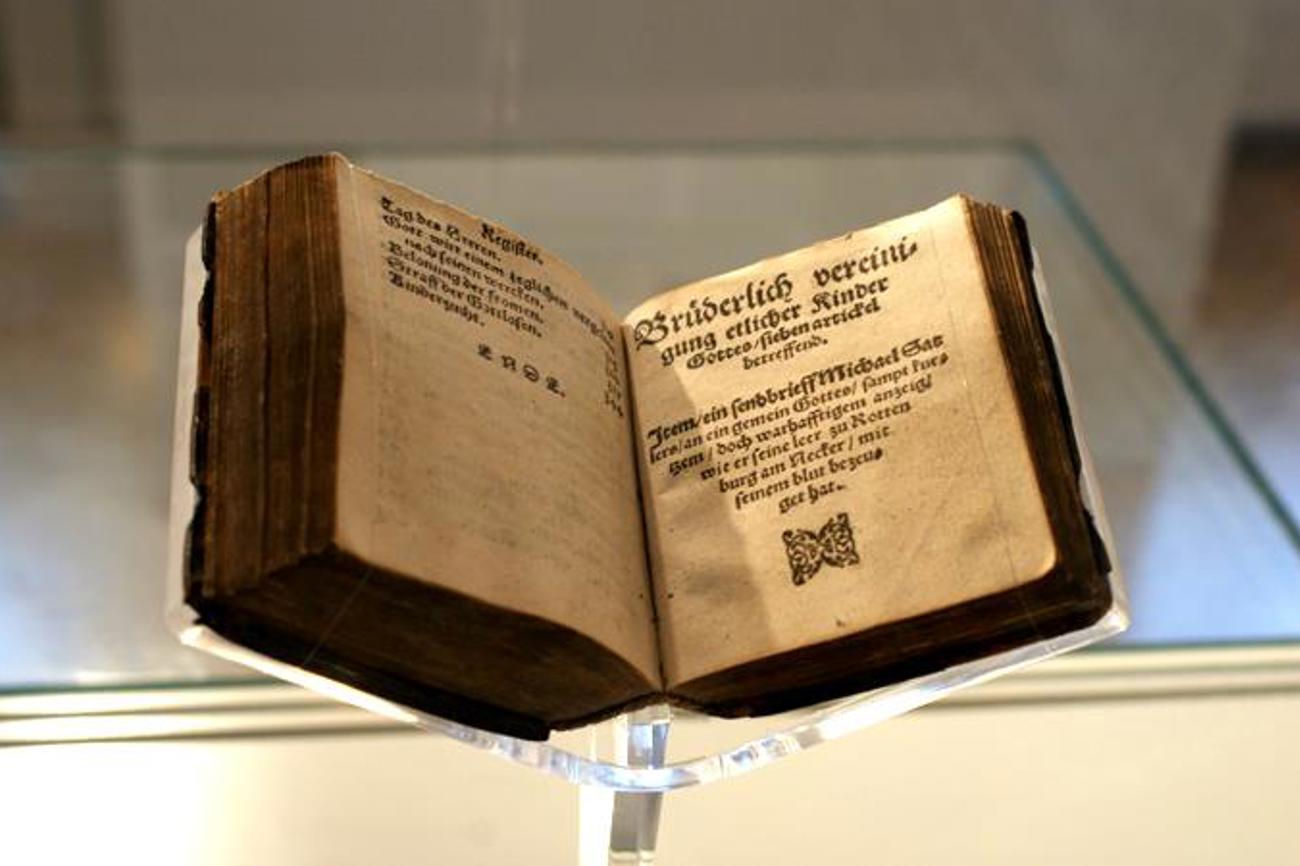 Register.
Tag des Herren.
Gott wirt einem jeglichen
nach seinen wercken.
Belonung der fromen.
Straff der Gottlosen.
Kinderzucht.
E N D E.
Brüderlich vereini⸗
gung etlicher Kinder
Gottes/sieben artickel
betreffend.
Item/ein sendbrieff Michael Sat
lers/an ein gemein Gottes/ sampt kur⸗
tzem / doch warhafftigem anzeig/
wie er seine leer zu Rotten
burg am Necker / mit
seinem blut bezeu⸗
get hat.